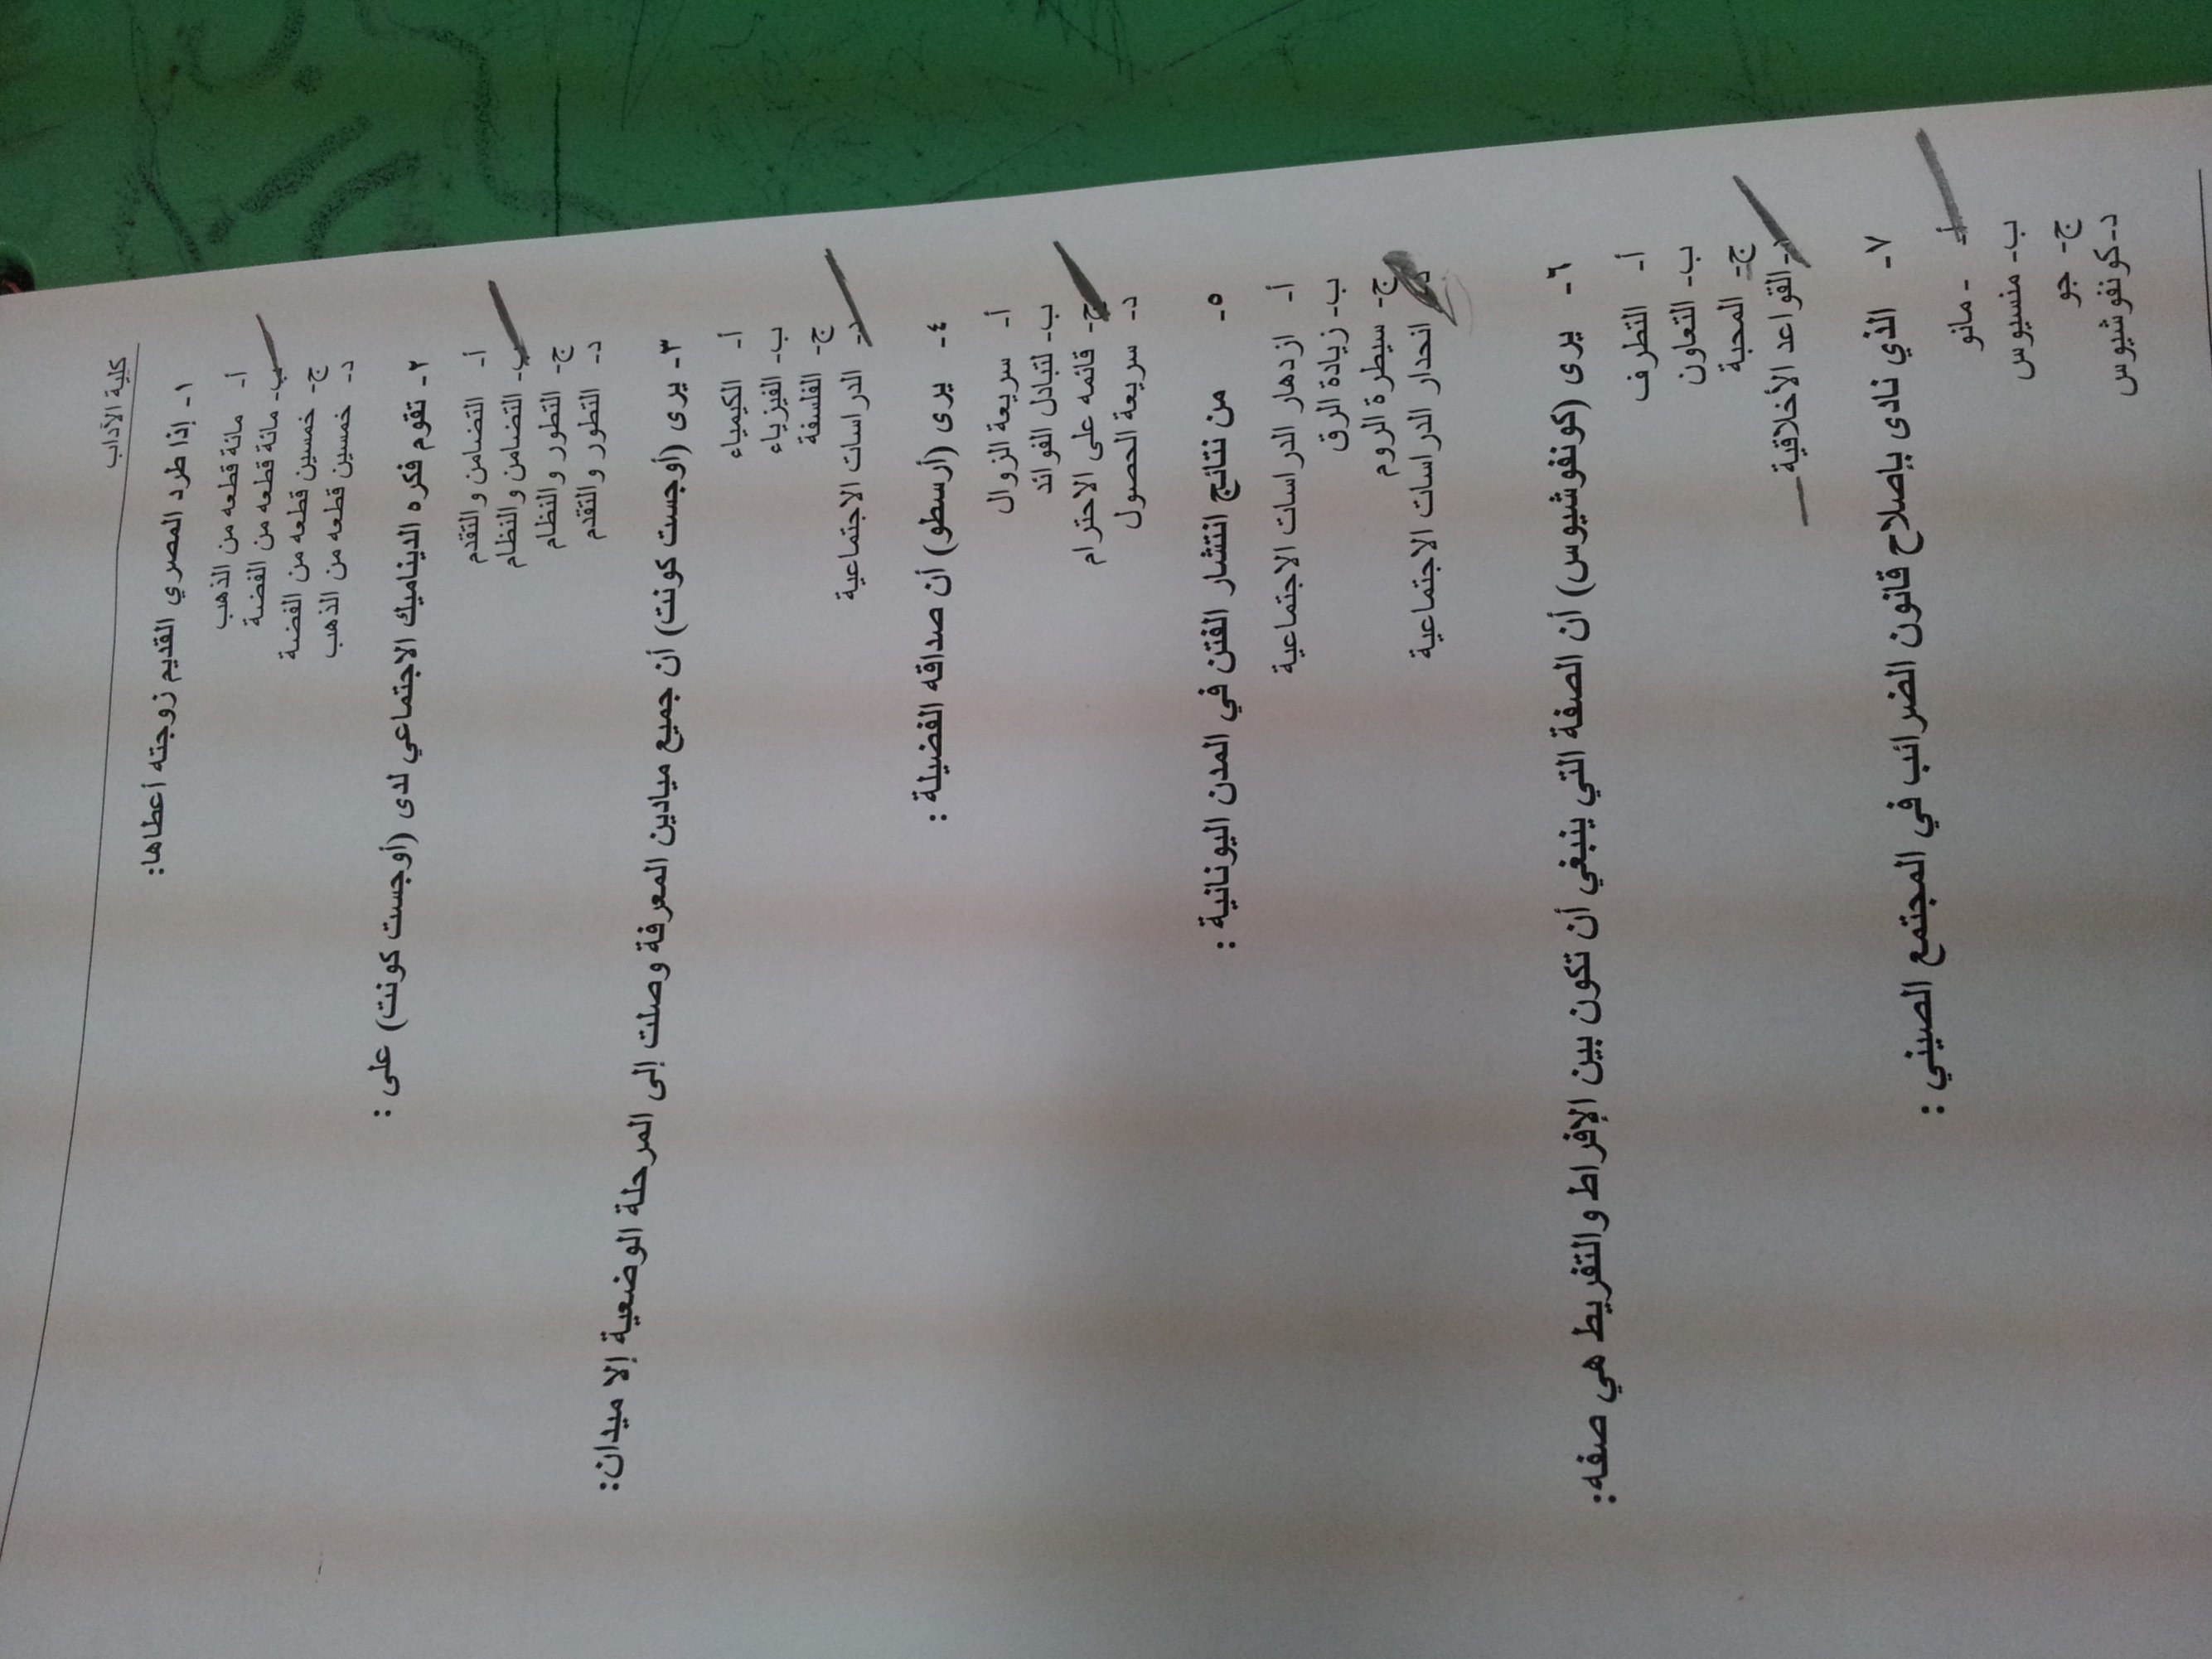 كلية الآداب
١- إذا طرد المصري القديم زوجته أعطاها:
أ- مائة قطعه من الذهب
ب- مائة قطعه من الفضة
ج- خمسين قطعه من الفضة
د- خمسين قطعه من الذهب
٢- تقوم فكره الديناميك الاجتماعي لدى (أوجست كونت) على :
أ- التضامن والتقدم
ب- التضامن والنظام
ج- التطور والنظام
د- التطور والتقدم
٣- يرى (أوجست كونت) أن جميع ميادين المعرفة وصلت إلى المرحلة الوضعية إلا ميدان:
أ- الكيمياء
ب- الفيزياء
ج- الفلسفة
د- الدراسات الاجتماعية
٤- يرى (أرسطو) أن صداقه الفضيلة :
أ- سريعة الزوال
ب- لتبادل الفوائد
ج- قائمه على الاحترام
د- سريعة الحصول
٥- من نتائج انتشار الفتن في المدن اليونانية :
أ- ازدهار الدراسات الاجتماعية
ب- زيادة الرق
ج- سيطرة الروم
د- انحدار الدراسات الاجتماعية
٦- يرى (كونفوشيوس) أن الصفة التي ينبغي أن تكون بين الإفراط والتفريط هي صفه:
أ- التطرف
ب- التعاون
ج- المحبة
د- القواعد الأخلاقية
٧- الذي نادى بإصلاح قانون الضرائب في المجتمع الصيني :
أ- - مانو
ب- منسيوس
ج- جو
د- كونفوشيوس